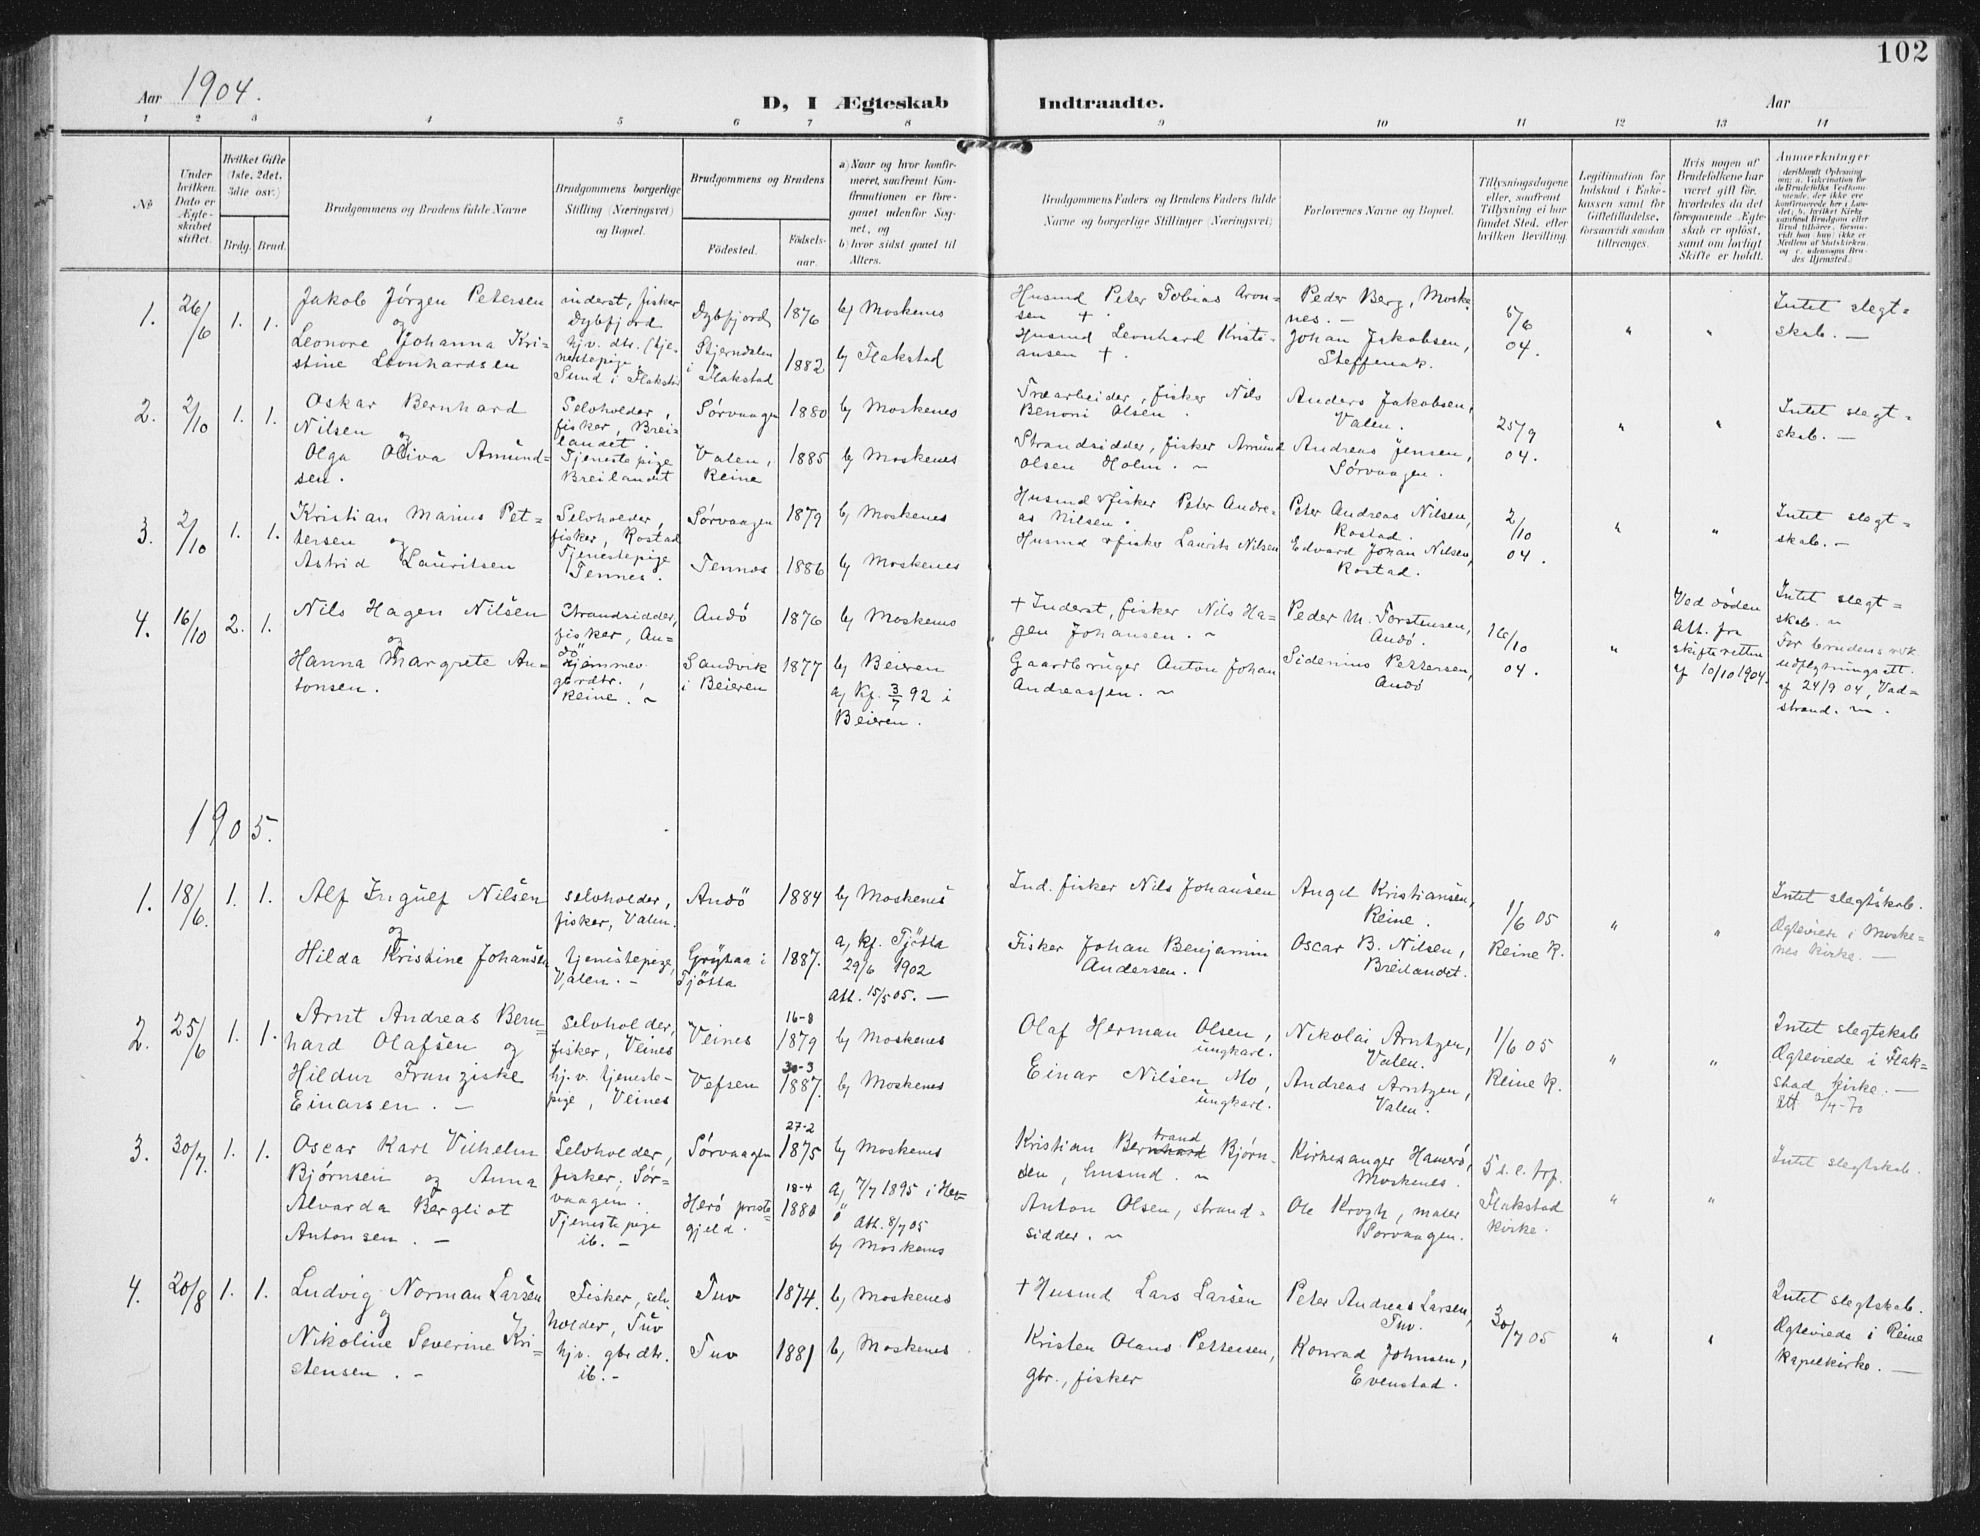 102
Aar 1904.
D, I Ægteskab Indtraadte.
Aar
1 2 3 4 5 6 7 8 9 10 11 12 13 14
No
Under hvilken Dato er Ægteskabet stiftet.
Hvilket Gifte (1ste, 2det, 3die osv.)
Brdg. Brud.
Brudgommens og Brudens fulde Navne
Brudgommens borgerlige Stilling (Næringsvei) og Bopæl.
Brudgommens og Brudens
Fødested. Fødsels-aar.
a) Naar og hvor konfirmeret, saafremt Konfirmationen er foregaaet udenfor Sognet, og
b) hvor sidst gaaet til Alters.
Brudgommens Faders og Brudens Faders fulde Navne og borgerlige Stillinger (Næringsvei)
Forlovernes Navne og Bopæl.
Tillysningsdagene eller, saafremt Tillysning ei har fundet Sted, efter hvilken Bevilling.
Legitimation for Indskud i Enkekassen samt for Giftetilladelse, forsaavidt saadan tiltrænges.
Hvis nogen af Brudefolkene har været gift før, hvorledes da det foregaaende Ægteskab er opløst, samt om lovligt Skifte er holdt.
Anmærkninger
1. 26/6 1. 1.
Jakob Jørgen Petersen
og
Leonore Johanna Kri-
stine Leonhardsen
inderst, fisker
Dybfjord
hjv. dtr. (tje-
nestepige
Sund i Flakstad
Dybfjord 1876 b) Moskenes
Stjerndalen
i Flakstad 1882 b) Flakstad
Husmd Peter Tobias Aron-
sen +.
Husmd Leonhard Kristi-
ansen +.
Peder Berg, Moske
nes. -
Johan Jakobsen,
Steffenak.
5/6
04.
" "
Intet slegt=
skab. -
2. 2/10 1. 1.
Oskar Bernhard
Nilsen og
Olga Oliva Amund-
sen.
Selvholder,
fisker, Brei-
landet.
Tjenestepige
Breilandet
Sørvaagen 1880 b) Moskenes
Valen,
Reine 1885 b) Moskenes
Træarbeider, fisker Nils
Benoni Olsen.
Strandsidder, fisker Amund
Olsen Holm. -
Anders Jakobsen,
Valen.
Andreas Jensen,
Sørvaagen.
25/9
04.
" "
Intet slegt=
skab. -
3. 2/10 1. 1.
Kristian Marius Pet-
tersen og
Astrid Lauritsen
Selvholder,
fisker, Rostad
Tjenestepige
Tennes.
Sørvaagen 1879 b) Moskenes
Tennes 1886 b) Moskenes
Husmd & fisker Peter Andre-
as Nilsen.
Husmd & fisker Laurits Nilsen
Peter Andreas Nilsen,
Rostad.
Edvard Johan Nilsen,
Rostad.
2/10
04.
" "
Intet slegt=
skab. -
4. 16/10 2. 1.
Nils Hagen Nilsen
og
Hanna Margrete An-
tonsen.
Strandsidder,
fisker, An-
dö
hjemmev.
gaardtr.,
Reine. -
Andö 1876 b) Moskenes
Sandvik
i Beieren 1877 b) Beieren
a) kf. 3/7 92 i
Beieren.
+ Inderst, fisker Nils Ha-
gen Johansen. -
Gaardbruger Anton Johan
Andreassen. -
Peder M. Torstensen,
Andö.
Sidenius Pettersen,
Andö
16/10
04.
"
Ved døden
Att. fra
skifteretten
af 10/10 1904.
Intet slegt=
skab. -
For brudens vedk.
udlysningsatt.
af 24/9 04, Vad-
strand. -
1905.
1. 18/6. 1. 1.
Alf Ingulf Nilsen
og
Hilda Kristine Johansen
selvholder,
fisker, Valen.
tjenestepige,
Valen. -
Andö 1884 b) Moskenes
Grytaa i
Tjötta 1887.
a) kf. Tjötta
29/6 1902
Att. 15/5 05. -
Ind. fisker Nils Johansen
Fisker Johan Benjamin
Andersen.
Angel Kristiansen,
Reine.
Oscar B. Nilsen,
Breilandet.
1/6 05
Reine K.
" "
Intet slegtskab.
Ægteviede i Moske=
nes kirke. -
2. 25/6 1. 1.
Arnt Andreas Bern-
hard Olafsen og
Hildur Franziske
Einarsen. -
selvholder,
fisker, Veines
hj.v. tjeneste-
pige, Veines
Veines 16-8 1879 b) Moskenes
Vefsen 30-3 1887. b) Moskenes
Olaf Herman Olsen,
ungkarl.
Einar Nilsen Mo,
ungkarl.
Nikolai Arntzen,
Valen.
Andreas Arntzen,
Valen.
1/6 05
Reine K.
" "
Intet slegtskab
Ægteviede i Flak-
stad kirke. -
Att 3/4-70
3. 30/7. 1. 1.
Oscar Karl Vilhelm
Bjørnsen og Anna
Alvarda Bergliot
Antonsen. -
Selvholder,
fisker, Sør-
vaagen.
Tjenestepige
ib. -
Sørvaagen 27-2 1875 b) Moskenes
Herø preste=
gjeld. 18-4 1880
a) 7/7 1895 i Her-
ö
Att. 8/7 05
b) Moskenes
Kristian Bernhard trand Bjørn-
sen, husmd. -
Anton Olsen, strand-
sidder. -
Kirkesanger Hamrö,
Moskenes.
Ole Krogh, maler
Sørvaagen.
5 s. e. trf.
Flakstad
kirke.
" "
Intet slegtskab.
4. 20/8 1. 1.
Ludvig Norman Larsen
og
Nikoline Severine Kri-
stensen. -
Fisker, selv
holder, Tuv
hjv. gbr dtr.
ib. -
Tuv 1874. b) Moskenes
Tuv 1881 b) Moskenes
+ Husmd Lars Larsen
Kristen Olaus Pettersen,
gbr., fisker
Peter Andreas Larsen,
Tuv.
Konrad Johnsen,
Evenstad.
30/7 05
" "
Intet slegtskab.
Ægteviede i Reine
kapelkirke. -